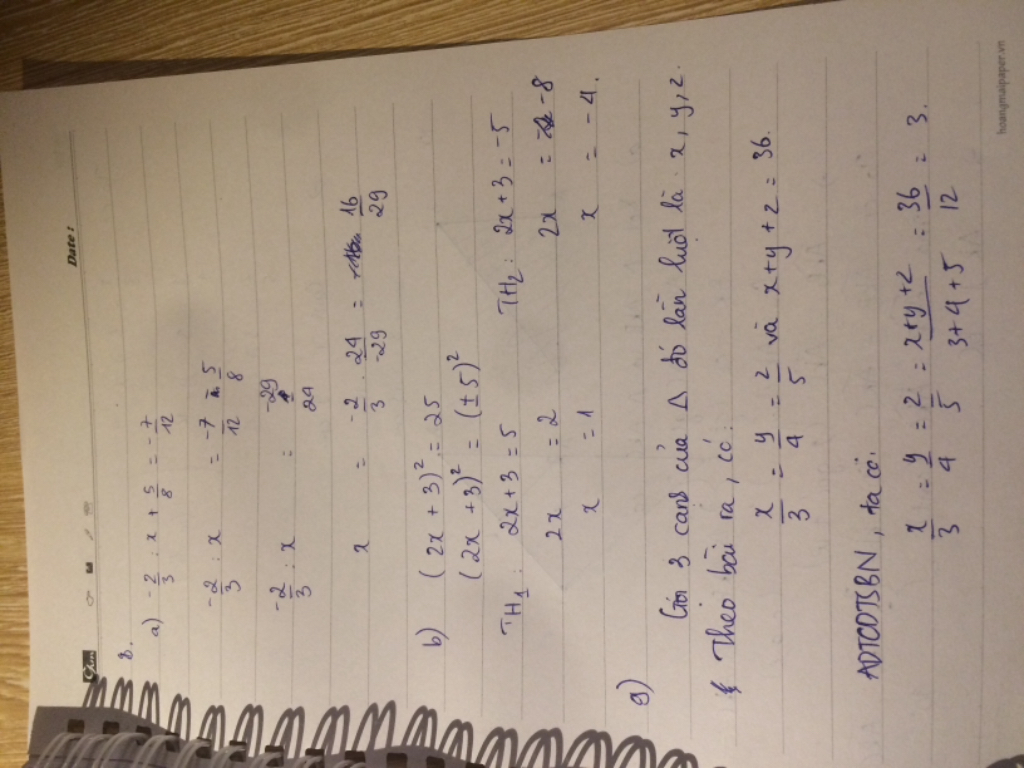 Date :
8.
a) -2/3 : x + 5/8 = -7/12
-2/3 : x = -7/12 - 5/8
-2/3 : x = -29/24
x = -2/3 . 24/-29 = 16/29
b) (2x + 3)² = 25
(2x + 3)² = (± 5)²
TH1: 2x + 3 = 5 TH2: 2x + 3 = -5
2x = 2 2x = -8
x = 1 x = -4.
9)
Gọi 3 cạnh của Δ đó lần lượt là x, y, z.
Theo bài ra, có:
x/3 = y/4 = z/5 và x + y + z = 36.
ADTCDTSBN, ta có:
x/3 = y/4 = z/5 = x+y+z/3+4+5 = 36/12 = 3.
hoangmaipaper.vn